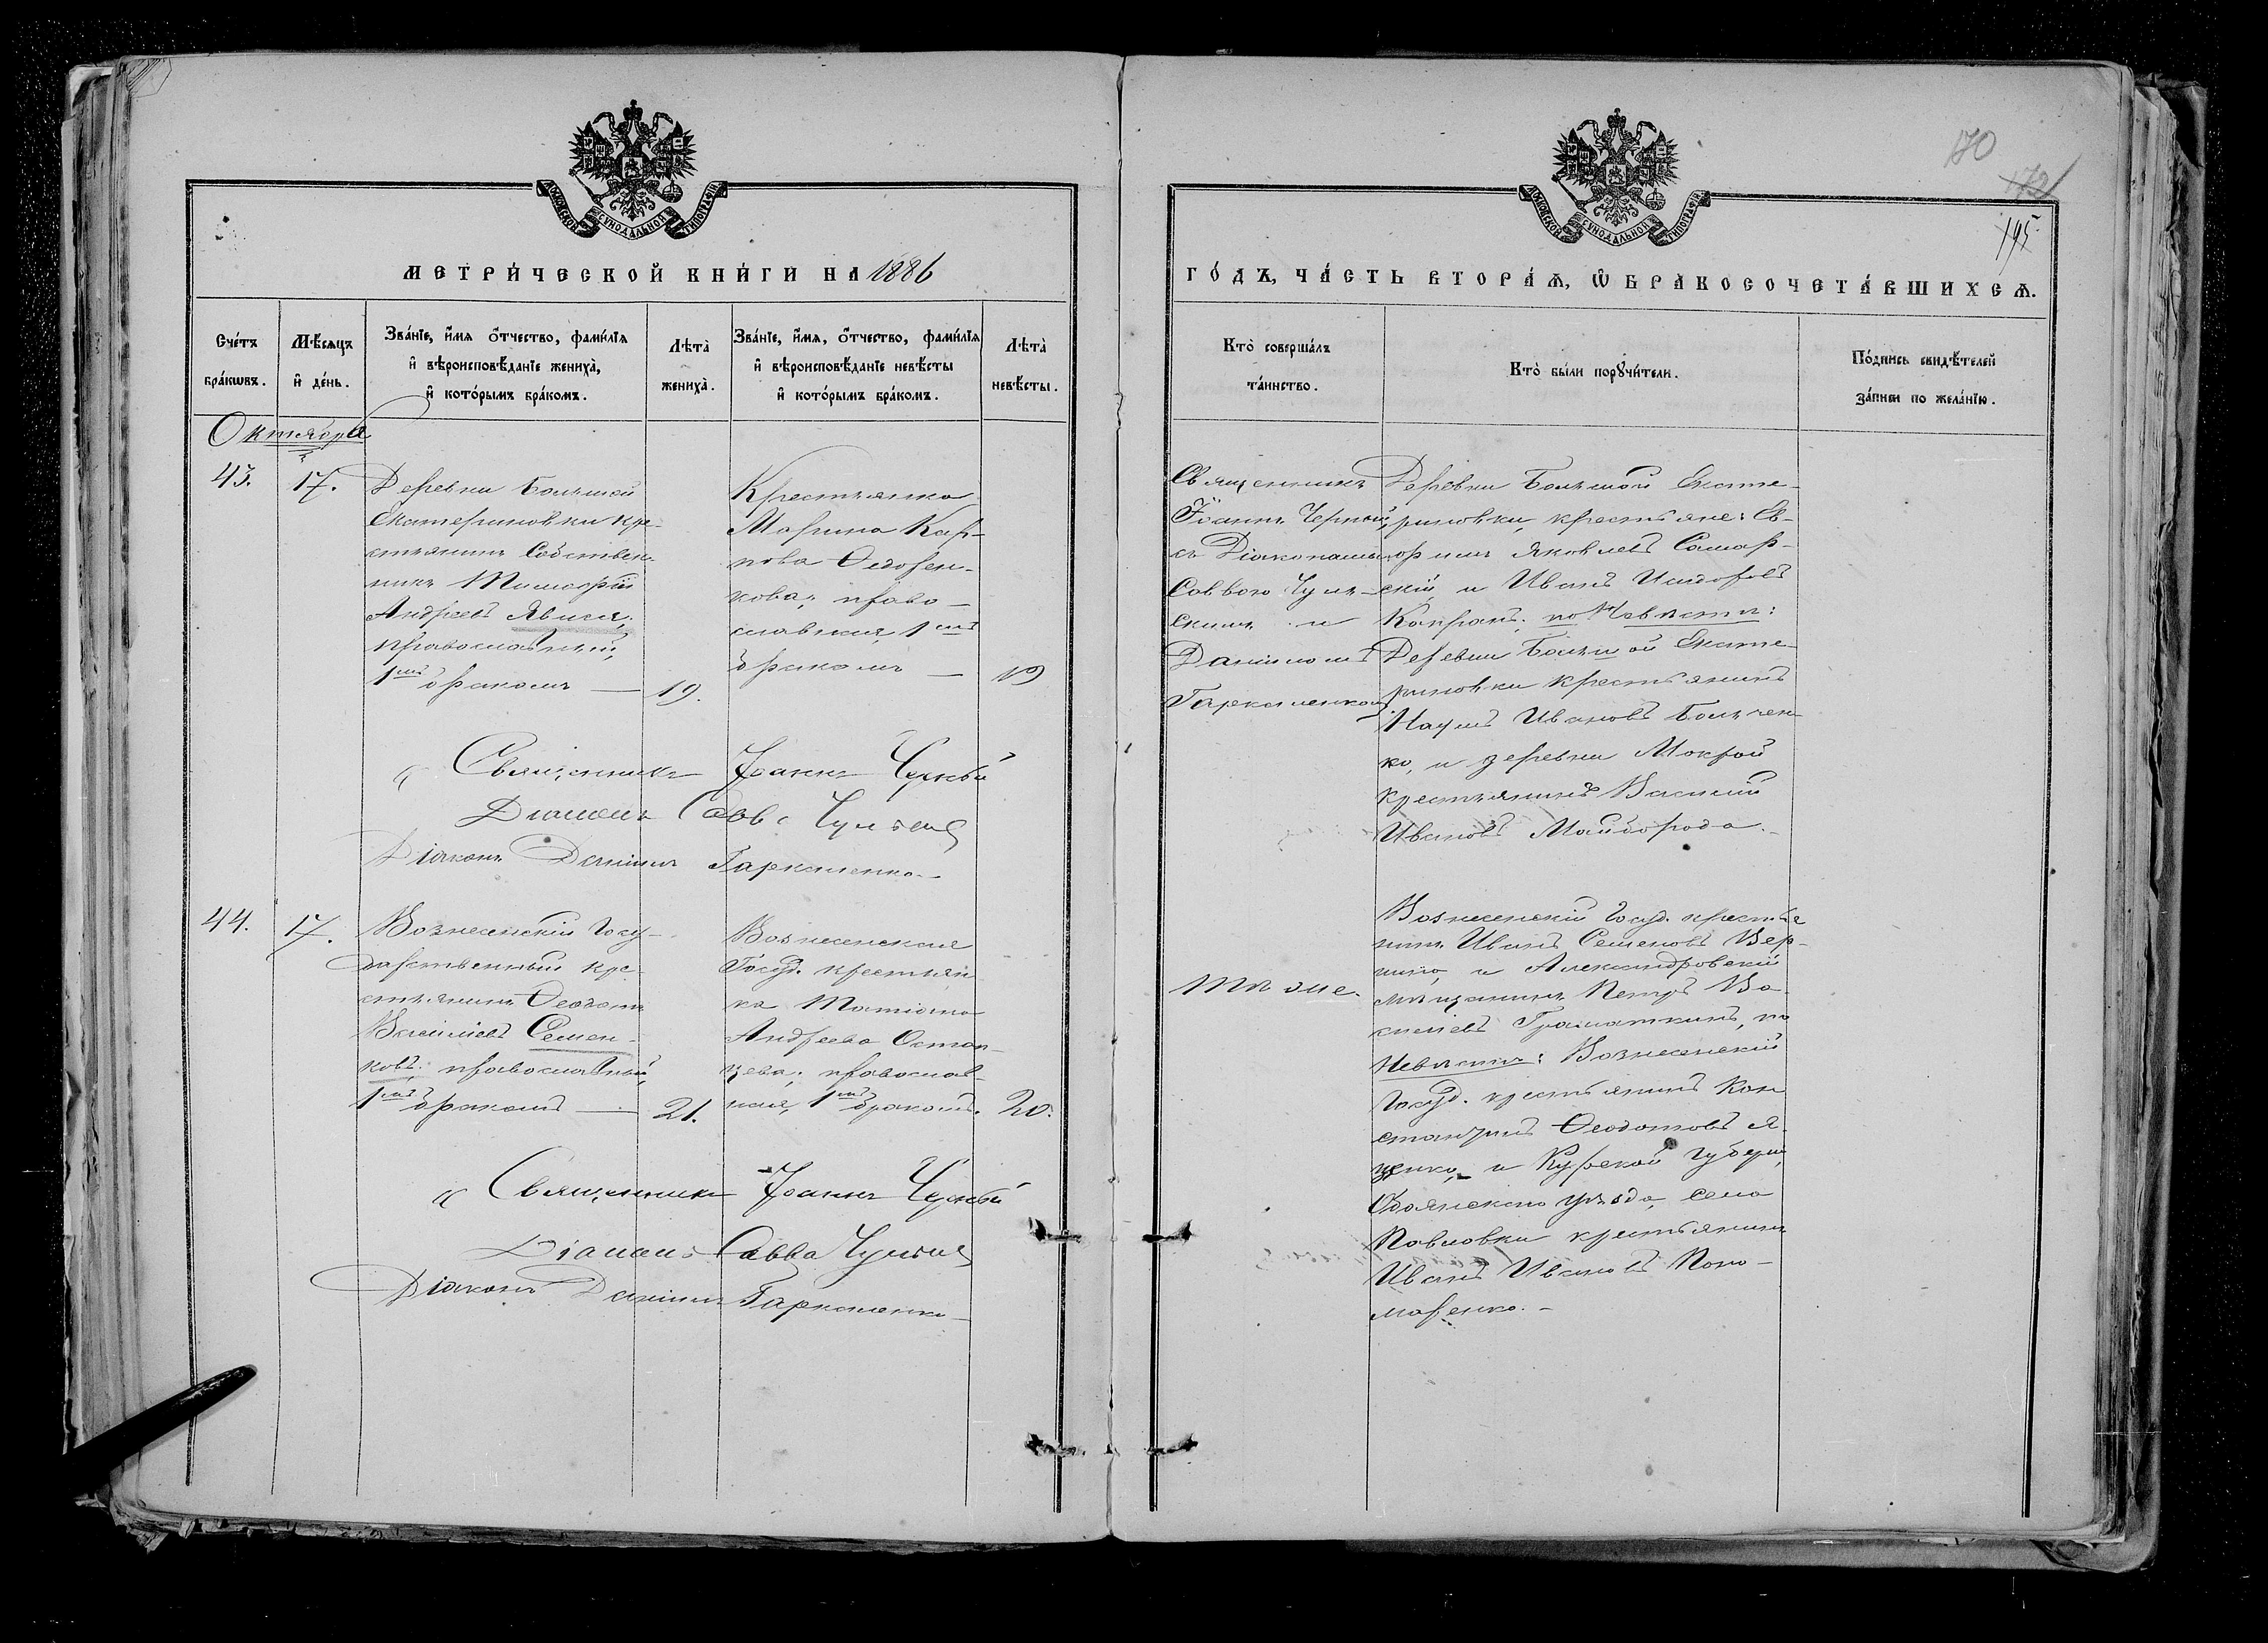 170
172
195
МОСКОВСКОЙ СѴНОДАЛЬНОЙ ТИПОГРАФІИ
МЕТРИ́ЧЕСКОЙ КНИ́ГИ НА 1886
Сче́тъ бра́кѡвъ.
Мѣ́сяцъ и де́нь.
Зва́нїе, и́мя, о́тчество, фами́лїя
и вѣроисповѣ́данїе жениха̀,
и кото́рымъ бра́комъ.
Лѣта̀ жениха̀.
Зва́нїе, и́мя, о́тчество, фами́лїя
и вѣроисповѣ́данїе невѣ́сты
и кото́рымъ бра́комъ.
Лѣта̀ невѣ́сты.
Октября
43.
17.
Деревни Большой
Екатериновки кре-
стьянинъ Собствен-
никъ Тимофій
Андреевъ Явися,
православный,
1мъ бракомъ —
19.
Крестьянка
Марина Кар-
пова Ѳедорен-
кова; право-
славная, 1мъ
бракомъ —
19
Священникъ Іоаннъ Черный
Діаконъ Савва Чульскій
Діаконъ Даніилъ Гаркаленко
44.
17.
Вознесенскій Госу-
дарственный кре-
стьянинъ Ѳеодотъ
Василіевъ Семен-
ковъ; православный,
1мъ бракомъ —
21.
Вознесенская
Госуд. крестьян-
ка Матіана
Андреева Остап-
цева; православ-
ная, 1мъ бракомъ.
20.
Священникъ Іоаннъ Черный
Діаконъ Савва Чульскій
Діаконъ Даніилъ Гаркаленко
МОСКОВСКОЙ СѴНОДАЛЬНОЙ ТИПОГРАФІИ
ГО́ДЪ, ЧА́СТЬ ВТОРА́Я, Ѡ БРАКОСОЧЕТА́ВШИХСЯ.
Кто̀ соверша́лъ
та́инство.
Кто̀ бы́ли порꙋчи́тели.
По́дпись свидѣ́телей
за́писи по жела́нїю.
Священникъ
Іоаннъ Черный,
съ Діаконами
Саввою Чуль-
скимъ и
Даніиломъ
Гаркаленкомъ
Деревни Большой Екате-
риновки, крестьяне: Ев-
фимъ Яковлевъ Самар-
скій, и Иванъ Исидоровъ
Капранъ; по Невѣсти:
Деревни Большой Екате-
риновки крестьянинъ
Наумъ Ивановъ Большен-
ко, и деревни Мокрой
крестьянинъ Василій
Ивановъ Майборода.
Тѣ же.
Вознесенскій Госуд. крестья
нинъ Иванъ Семеновъ Вер-
, и Александровскій
мѣщанинъ Петръ Ва-
силіевъ Граматкинъ, по
Невѣсти: Вознесенскій
Госуд. крестьянинъ Кон
стантинъ Ѳеодотовъ Я-
ценко, и Курской губерн,
Обоянскаго уѣзда, села
Павловки крестьянинъ
Иванъ Ивановъ Поно-
маренко. —